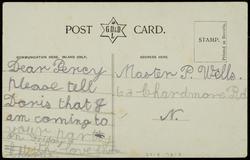 POST CARD.
COMMUNICATION HERE, INLAND ONLY.
ADDRESS HERE.
STAMP.
Dear Percy
please tell
Doris that I
am coming to
your party
with love from
Master P. Wells.
63 Chardmore Rd
N.